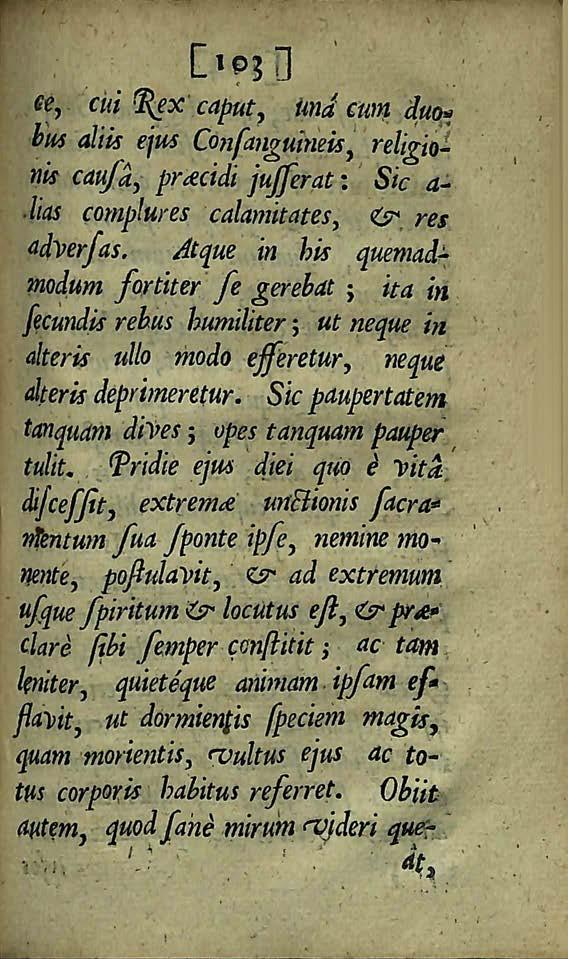 [103]
ce, cui Rex caput, unâ cum duo-
bus aliis ejus Conſanguineis, religio-
nis cauſâ, præcidi juſſerat: Sic a-
lias complures calamitates, & res
adverſas. Atque in his quemad-
modum fortiter ſe gerebat; ita in
ſecundis rebus humiliter; ut neque in
alteris ullo modo efferetur, neque
alteris deprimeretur. Sic paupertatem
tanquam dives; opes tanquam pauper
tulit. Pridie ejus diei quo è vitâ
diſceſſit, extremæ unctionis ſacra-
mentum ſua ſponte ipſe, nemine mo-
nente, poſtulavit, & ad extremum
uſque ſpiritum & locutus eſt, & præ-
clarè ſibi ſemper conſtitit; ac tam
leniter, quietéque animam ipſam ef-
flavit, ut dormientis ſpeciem magis,
quam morientis, vultus ejus ac to-
tus corporis habitus referret. Obiit
autem, quod ſanè mirum videri que-
at,